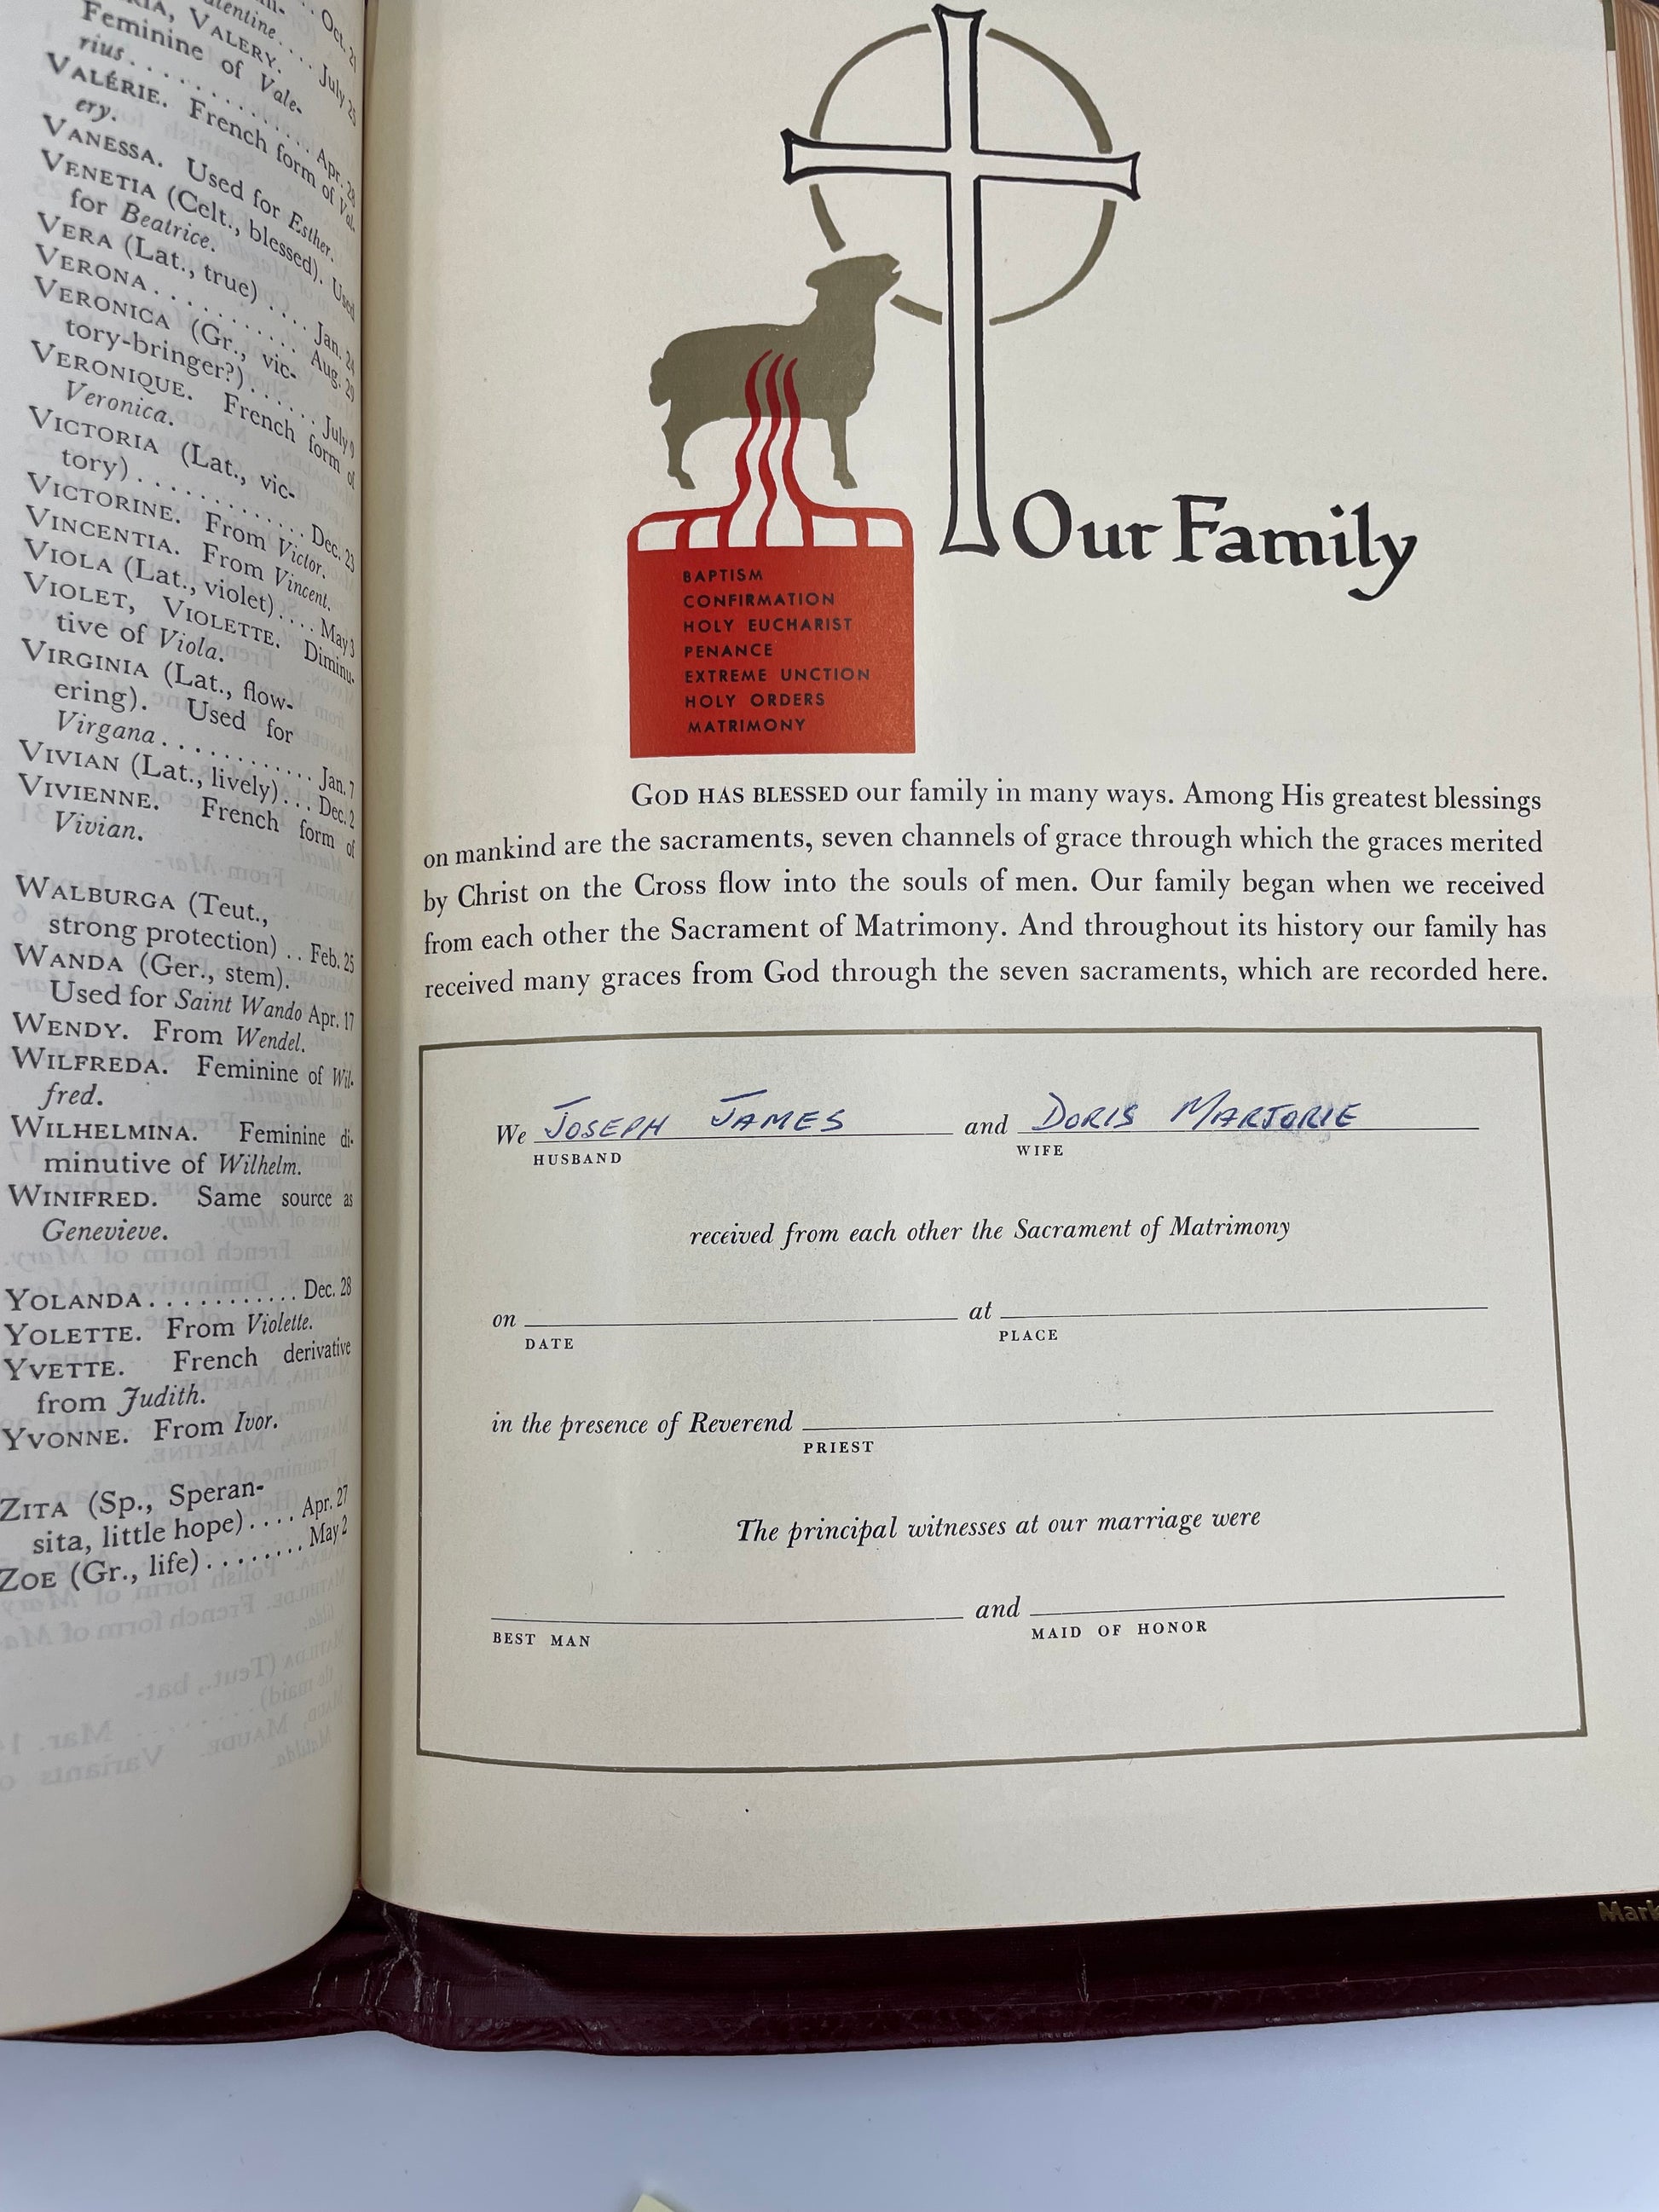 VALERY.
Feminine of Vale-
rius
VALÉRIE. French form of Val-
ery.
VANESSA. Used for Esther.
VENETIA (Celt., blessed). Used
for Beatrice.
VERA (Lat., true) .... Jan. 24
VERONA .......... Aug. 29
VERONICA (Gr., vic-
tory-bringer?) ...... July 9
VERONIQUE. French form of
Veronica.
VICTORIA (Lat., vic-
tory) ............. Dec. 23
VICTORINE. From Victor.
VINCENTIA. From Vincent.
VIOLA (Lat., violet) .... May 3
VIOLET, VIOLETTE. Diminu-
tive of Viola.
VIRGINIA (Lat., flow-
ering). Used for
Virgana ............ Jan. 7
VIVIAN (Lat., lively) ... Dec. 2
VIVIENNE. French form of
Vivian.
WALBURGA (Teut.,
strong protection) .. Feb. 25
WANDA (Ger., stem).
Used for Saint Wando Apr. 17
WENDY. From Wendel.
WILFREDA. Feminine of Wil-
fred.
WILHELMINA. Feminine di-
minutive of Wilhelm.
WINIFRED. Same source as
Genevieve.
YOLANDA ........... Dec. 28
YOLETTE. From Violette.
YVETTE. French derivative
from Judith.
YVONNE. From Ivor.
ZITA (Sp., Speran-
sita, little hope) .... Apr. 27
ZOE (Gr., life) ........ May 2
Our Family
BAPTISM
CONFIRMATION
HOLY EUCHARIST
PENANCE
EXTREME UNCTION
HOLY ORDERS
MATRIMONY
GOD HAS BLESSED our family in many ways. Among His greatest blessings
on mankind are the sacraments, seven channels of grace through which the graces merited
by Christ on the Cross flow into the souls of men. Our family began when we received
from each other the Sacrament of Matrimony. And throughout its history our family has
received many graces from God through the seven sacraments, which are recorded here.
We JOSEPH JAMES and DORIS MARJORIE
HUSBAND WIFE
received from each other the Sacrament of Matrimony
on at
DATE PLACE
in the presence of Reverend
PRIEST
The principal witnesses at our marriage were
and
BEST MAN MAID OF HONOR